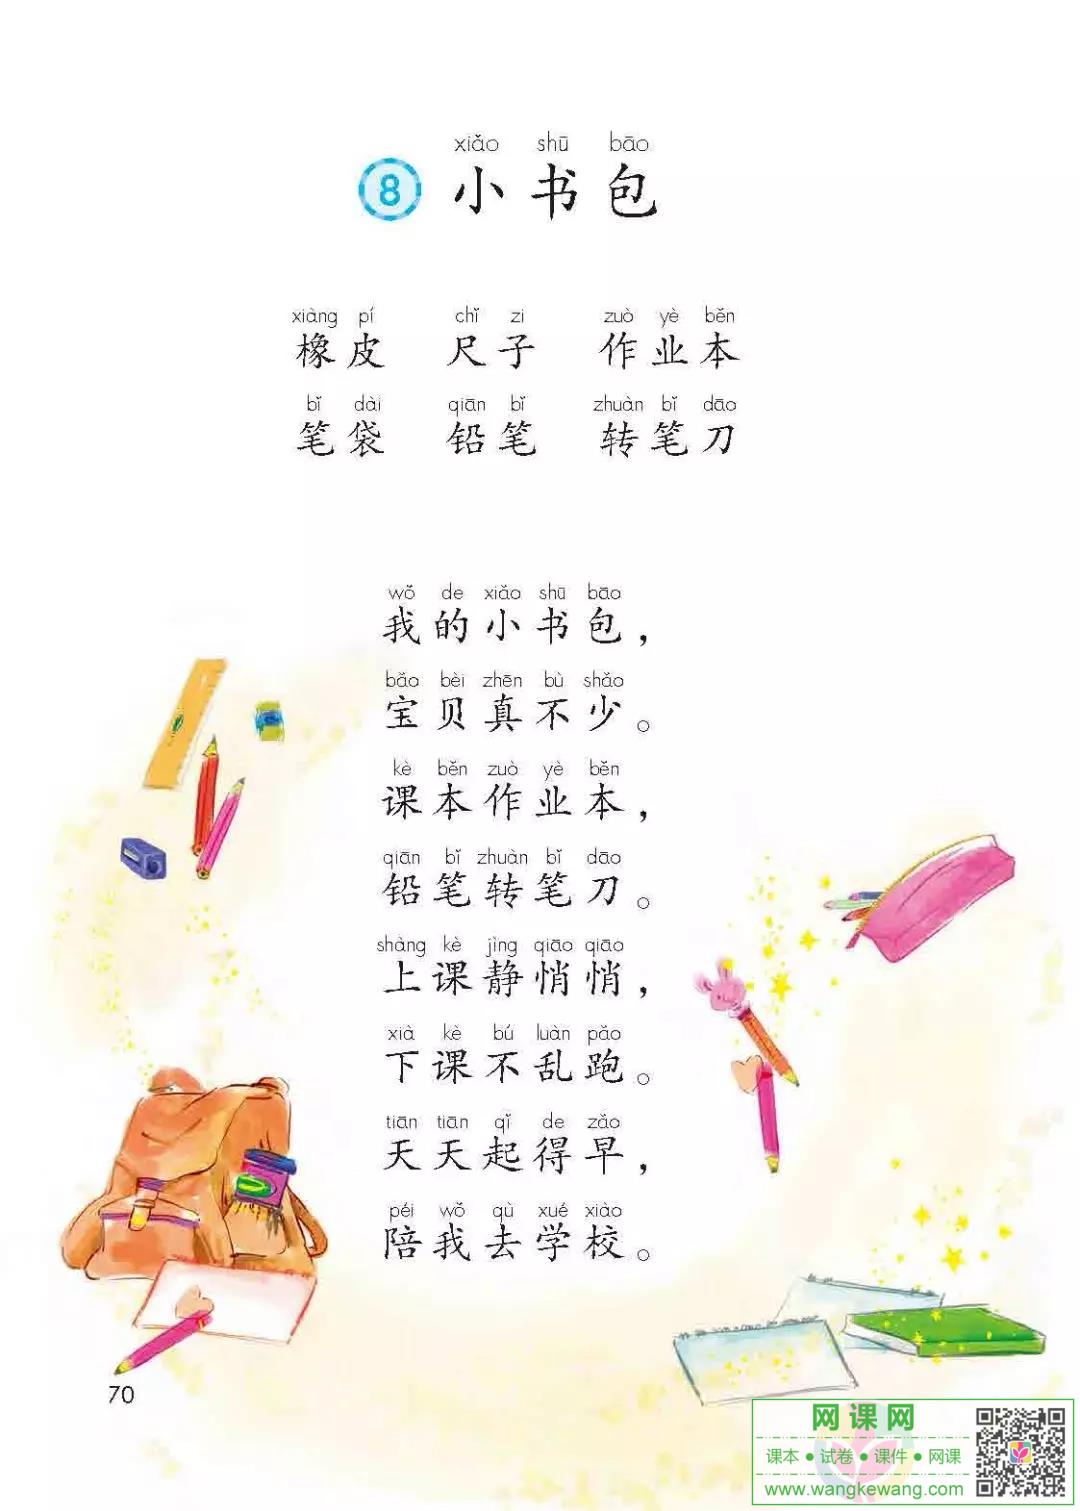 xiǎo shū bāo
8 小书包
xiàng pí chǐ zi zuò yè běn
橡皮 尺子 作业本
bǐ dài qiān bǐ zhuàn bǐ dāo
笔袋 铅笔 转笔刀
wǒ de xiǎo shū bāo
我的小书包，
bǎo bèi zhēn bù shǎo
宝贝真不少。
kè běn zuò yè běn
课本作业本，
qiān bǐ zhuàn bǐ dāo
铅笔转笔刀。
shàng kè jìng qiāo qiāo
上课静悄悄，
xià kè bú luàn pǎo
下课不乱跑。
tiān tiān qǐ de zǎo
天天起得早，
péi wǒ qù xué xiào
陪我去学校。
70
网课网
课本●试卷●课件●网课
www.wangkewang.com